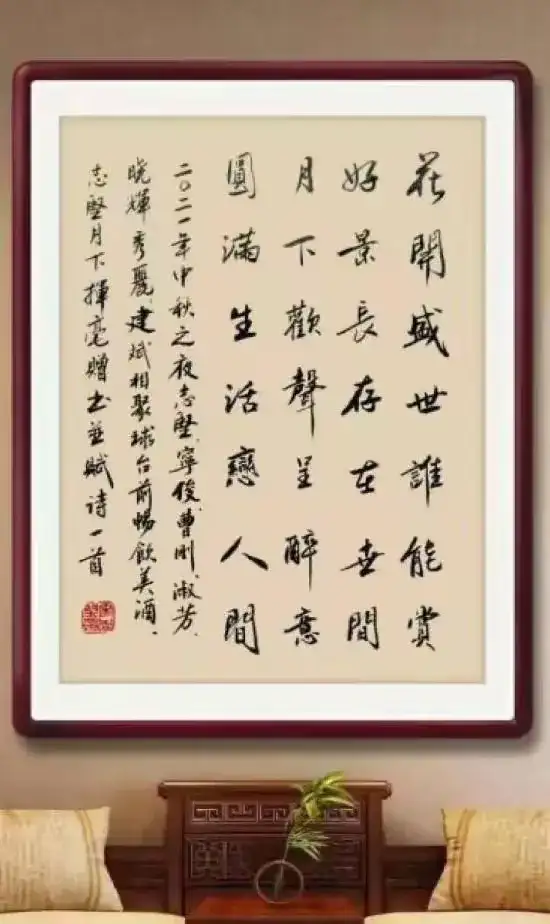 花開盛世誰能賞
好景長存在世間
月下歡聲呈醉意
圓滿生活戀人間
二〇二一年中秋之夜志堅、寧俊、曹刚、淑芳、
晓輝、秀麗、建斌相聚球台前暢飲美酒，
志堅月下揮毫贈书並賦诗一首